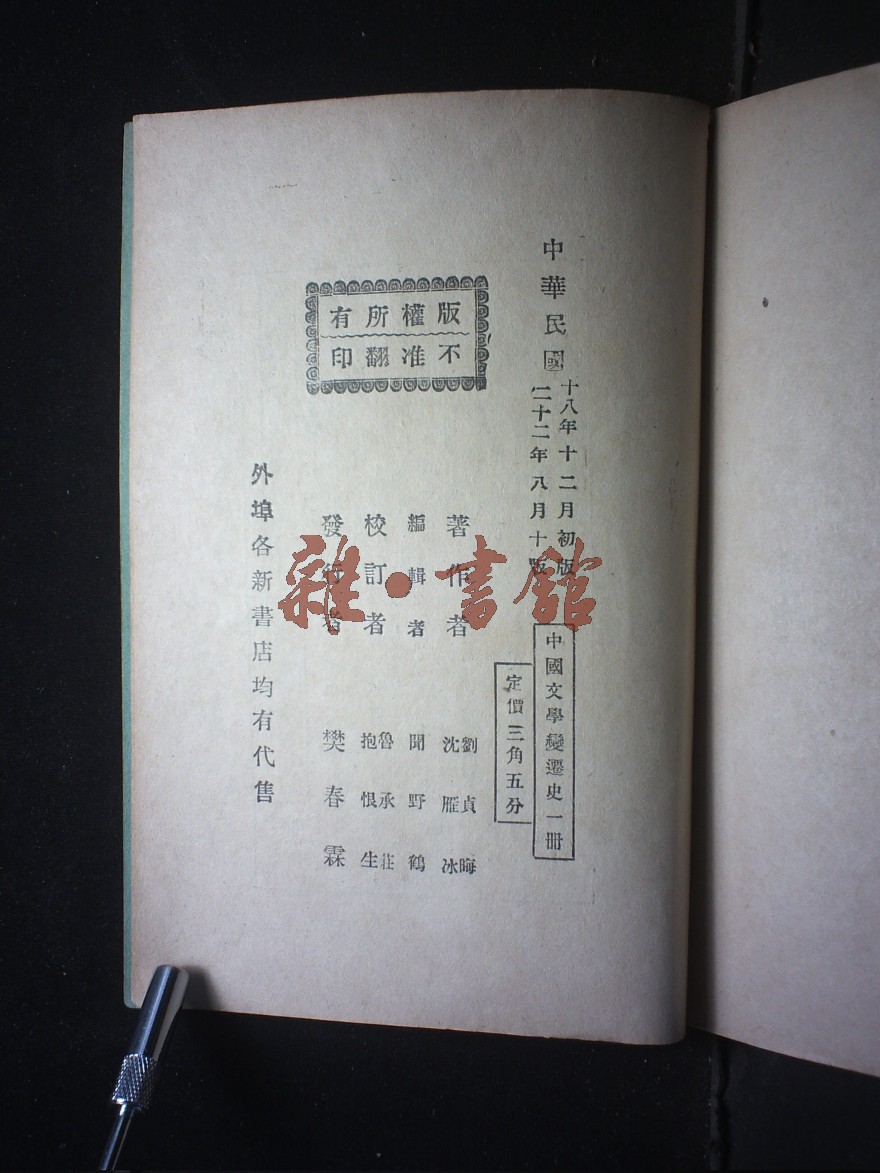 中華民國
十八年十二月初版
二十二年八月十版
中國文學變遷史一冊
定價三角五分
版權所有
不准翻印
著作者 劉貞晦 沈雁冰
編輯者 聞野鶴
校訂者 魯承莊 抱恨生
發行者 樊春霖
外埠各新書店均有代售
雜·書館